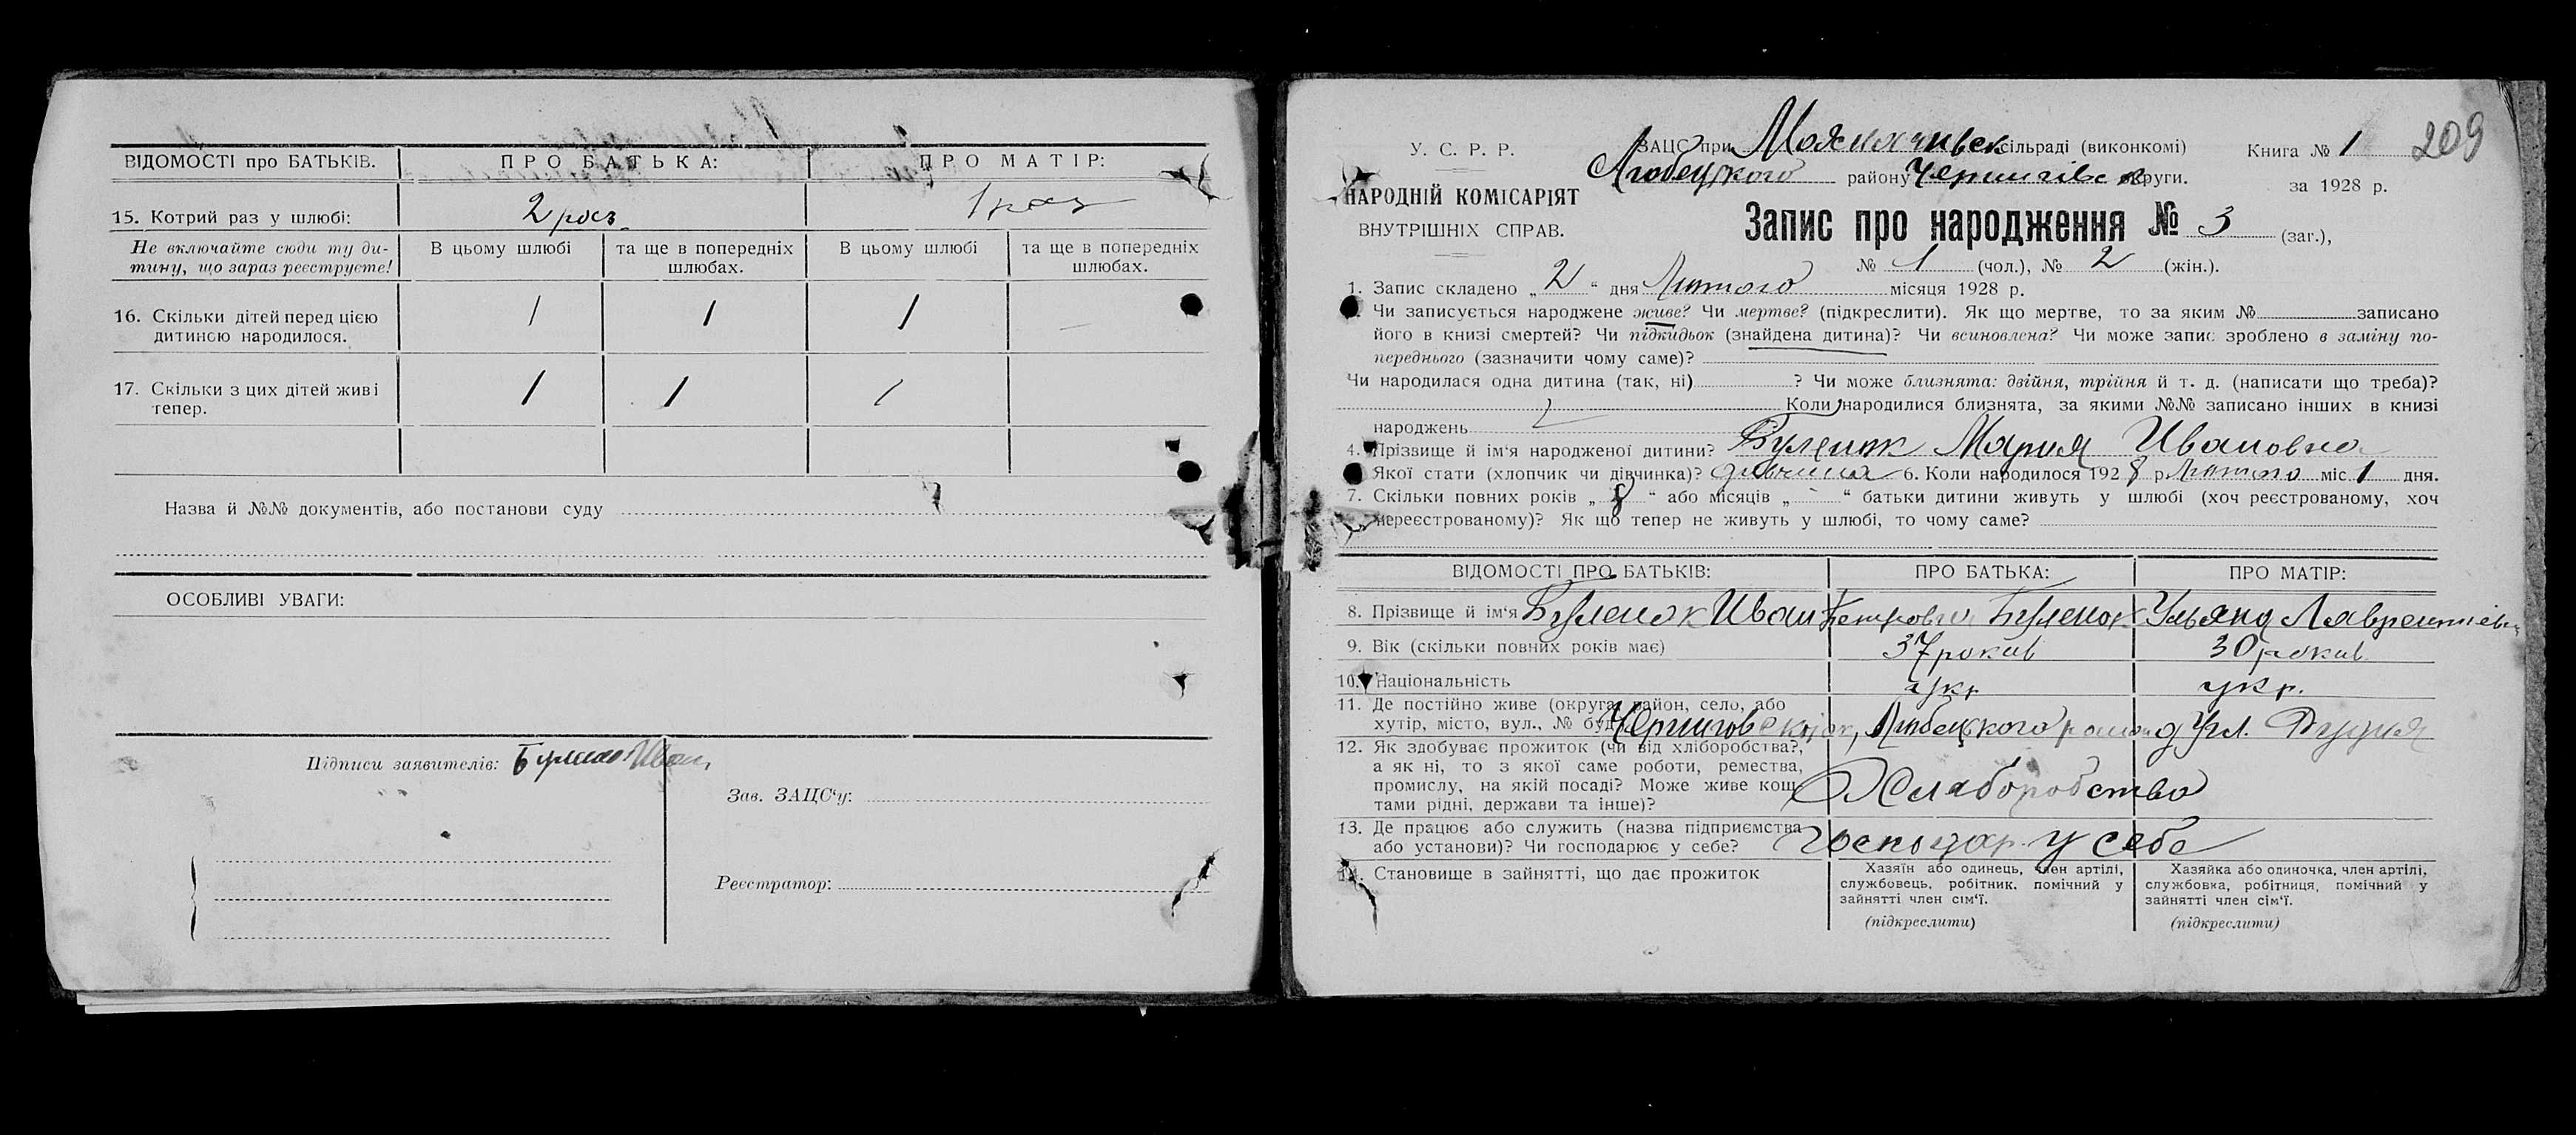 ВІДОМОСТІ про БАТЬКІВ. ПРО БАТЬКА: ПРО МАТІР:
15. Котрий раз у шлюбі: 2 раз 1 раз
Не включайте сюди ту ди- В цьому шлюбі та ще в попередніх В цьому шлюбі та ще в попередніх
тину, що зараз реєструєте! шлюбах. шлюбах.
16. Скільки дітей перед цією 1 1 1 —
дитиною народилося.
17. Скільки з цих дітей живі 1 1 1
тепер.
Назва й №№ документів, або постанови суду
ОСОБЛИВІ УВАГИ:
Підписи заявителів: Іван
Зав. ЗАЦС'у:
Реєстратор:
У. С. Р. Р. ЗАЦС при сільраді (виконкомі) Книга № 1 209
Любецького району Чернигівск округи. за 1928 р.
НАРОДНІЙ КОМІСАРІЯТ
ВНУТРІШНІХ СПРАВ.
Запис про народження № 3 (заг.),
№ 1 (чол.), № 2 (жін.).
1. Запис складено „2“ дня Лютого місяця 1928 р.
Чи записується народжене живе? Чи мертве? (підкреслити). Як що мертве, то за яким № записано
його в книзі смертей? Чи підкидьок (знайдена дитина)? Чи всиновлена? Чи може запис зроблено в заміну по-
переднього (зазначити чому саме)?
Чи народилася одна дитина (так, ні) ? Чи може близнята: двійня, трійня й т. д. (написати що треба)?
Коли народилися близнята, за якими №№ записано інших в книзі
народжень
4. Прізвище й ім'я народженої дитини? Мария Ивановна
Якої стати (хлопчик чи дівчинка)? дивчина 6. Коли народилося 1928 р. Лютого міс. 1 дня.
7. Скільки повних років „8“ або місяців „-“ батьки дитини живуть у шлюбі (хоч реєстрованому, хоч
нереєстрованому)? Як що тепер не живуть у шлюбі, то чому саме?
ВІДОМОСТІ ПРО БАТЬКІВ: ПРО БАТЬКА: ПРО МАТІР:
8. Прізвище й ім'я Буленок Иван Петрович Буленок Ульяна Лаврентиевн
9. Вік (скільки повних років має) 37 рокив 30 рокив
10. Національність укр укр.
11. Де постійно живе (округа, район, село, або
хутір, місто, вул., № буд. Любецького
12. Як здобуває прожиток (чи від хліборобства?,
а як ні, то з якої саме роботи, ремества,
промислу, на якій посаді? Може живе кош- Хлаборобство
тами рідні, держави та інше)?
13. Де працює або служить (назва підприємства
або установи)? Чи господарює у себе? Господар у себе
14. Становище в зайнятті, що дає прожиток
Хазяїн або одинець, член артілі,
службовець, робітник, помічний у
зайнятті член сім'ї.
(підкреслити)
Хазяйка або одиночка, член артілі,
службовка, робітниця, помічний у
зайнятті член сім'ї.
(підкреслити)